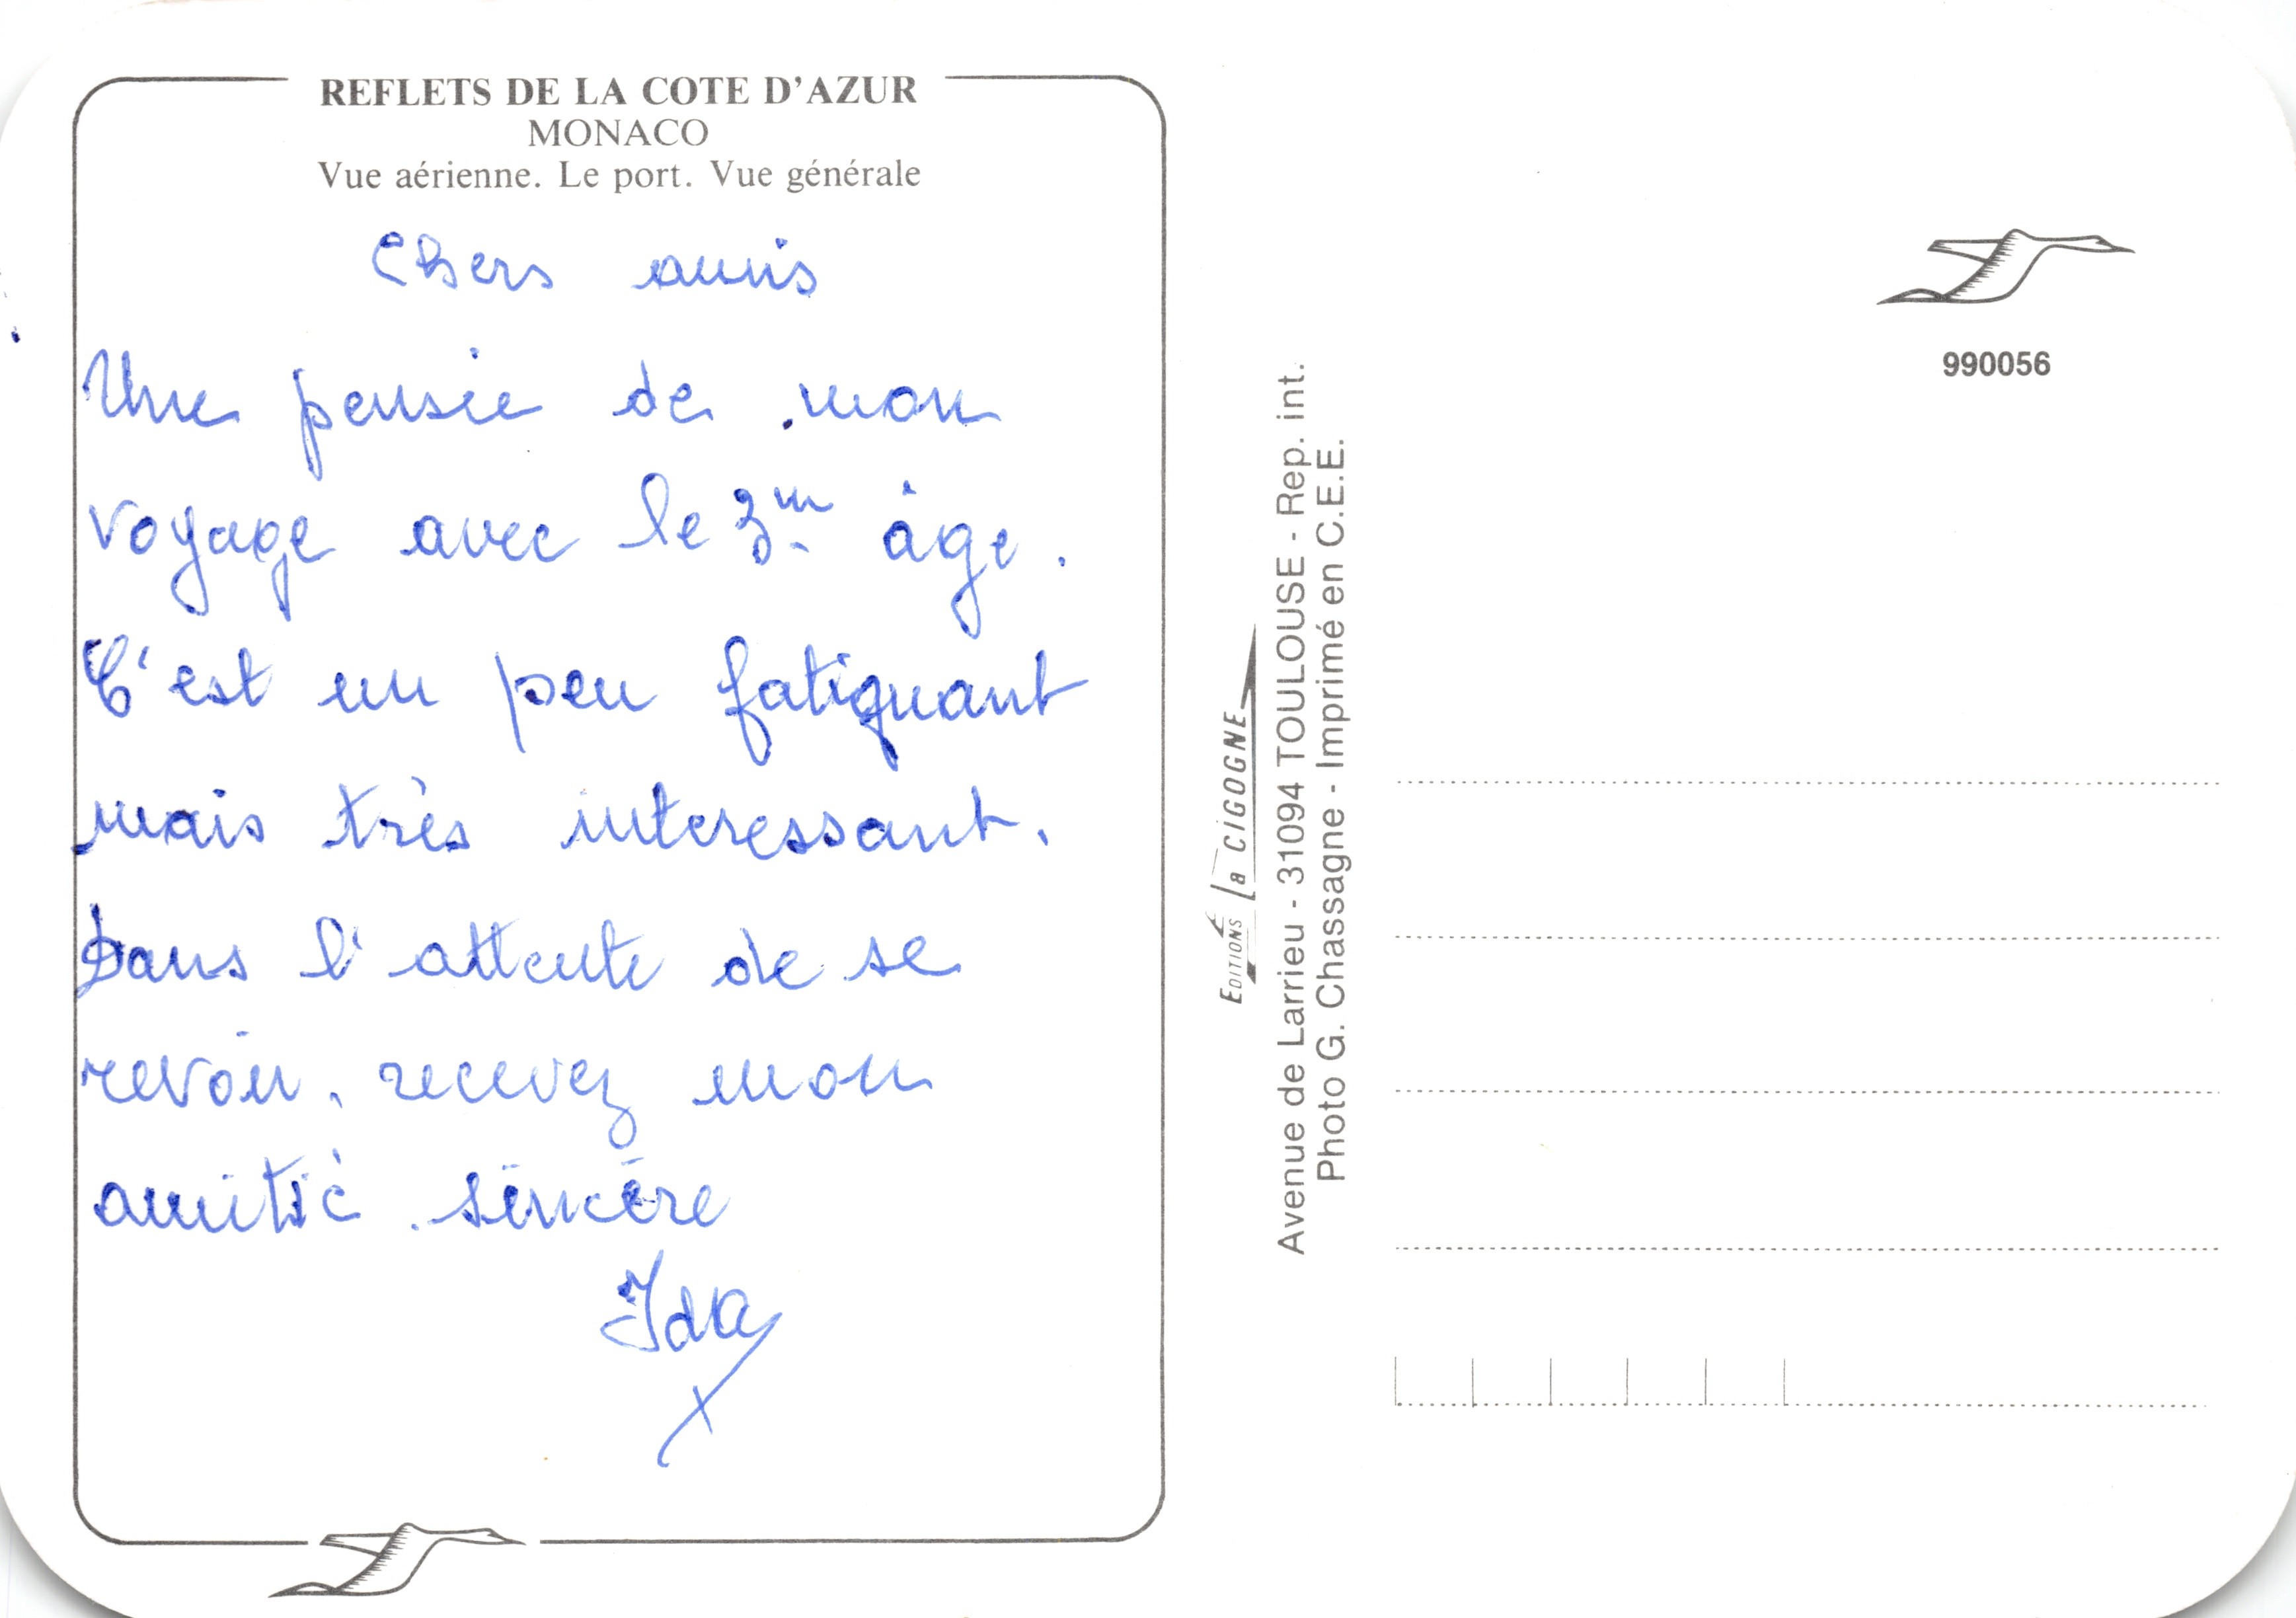 REFLETS DE LA COTE D'AZUR
MONACO
Vue aérienne. Le port. Vue générale
Chers amis
Une pensée de mon
voyage avec le 3m âge.
C'est un peu fatiguant
mais très interessant.
Dans l'attente de se
revoir, recevez mon
amitié sincère
Ida
EDITIONS La CIGOGNE
Avenue de Larrieu - 31094 TOULOUSE - Rep. int.
Photo G. Chassagne - Imprimé en C.E.E.
990056